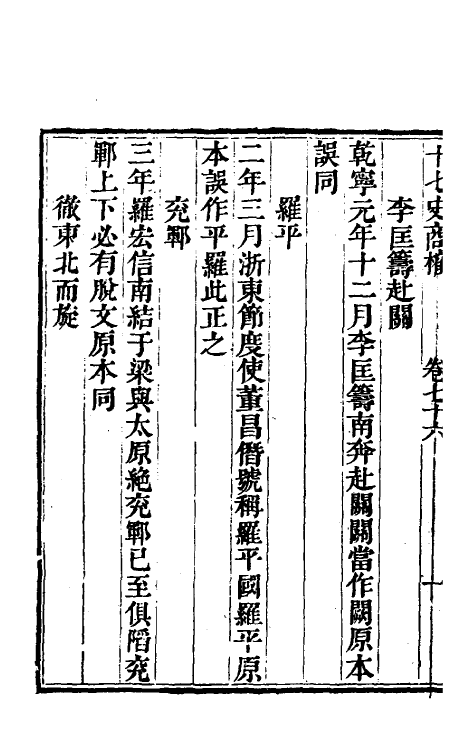 十七史商榷　卷七十六　十
李匡籌赴關
乾寧元年十二月李匡籌南奔赴關關當作闕原本
誤同
羅平
二年三月浙東節度使董昌僭號稱羅平國羅平原
本誤作平羅此正之
兖鄆
三年羅宏信南結于梁與太原絶兖鄆已至俱陷兖
鄆上下必有脫文原本同
徹東北而旋